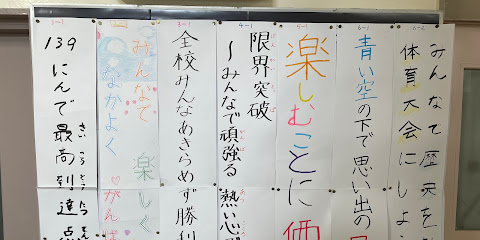 6-2
みんなで歴史を
体育大会にしよ
6-1
青い空の下で思い出の
5-1
楽しむことに価
4-1
限界突破
～みんなで頑張る 熱い心で
3-1
全校みんなあきらめず勝利
みんなで 楽しく
なかよく ♡がんば
1-1
139にんで最高到達点